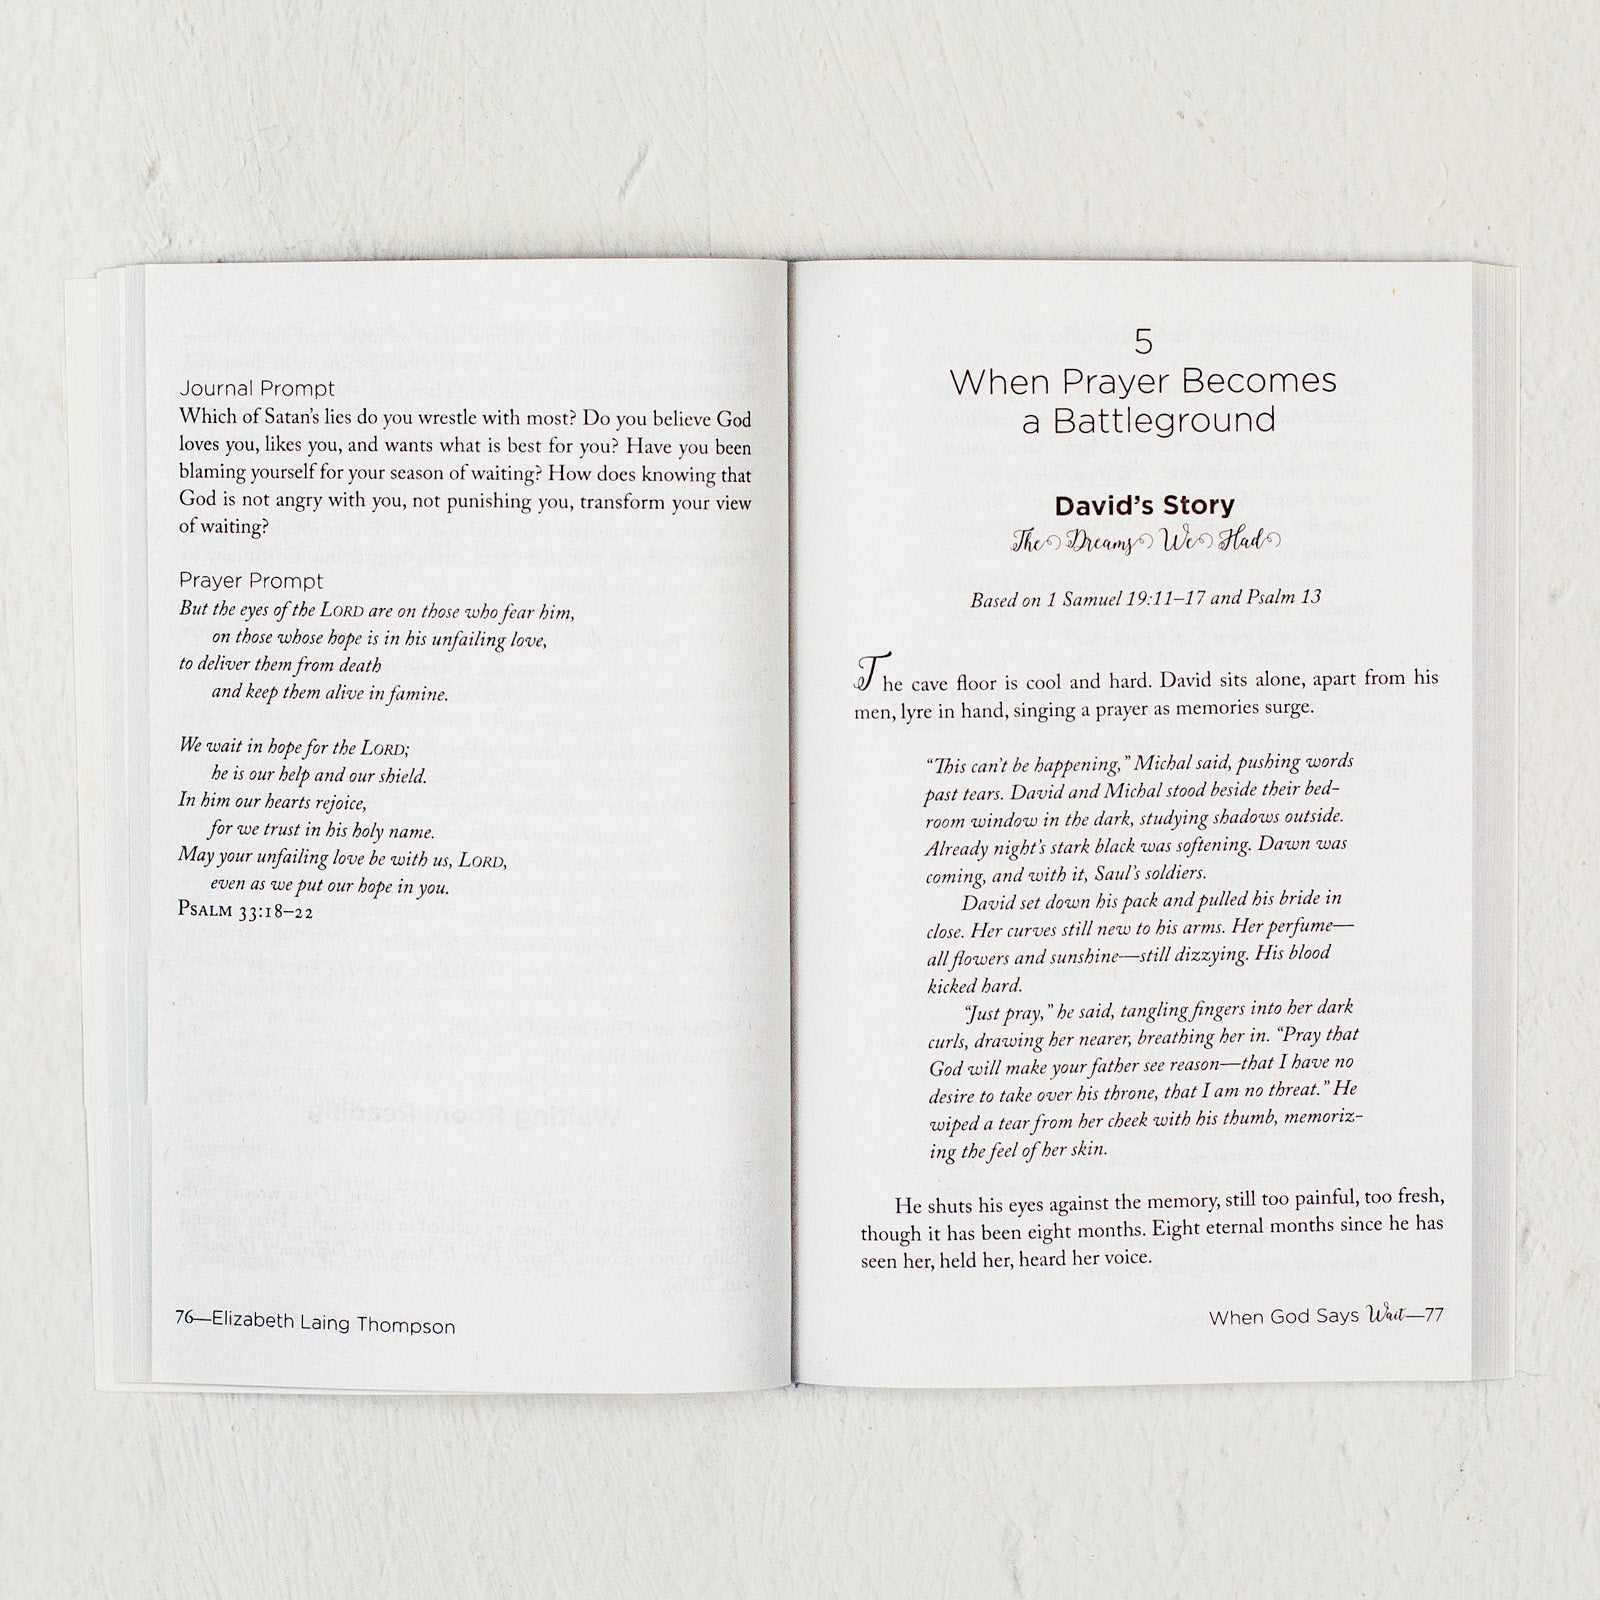 Journal Prompt
Which of Satan's lies do you wrestle with most? Do you believe God
loves you, likes you, and wants what is best for you? Have you been
blaming yourself for your season of waiting? How does knowing that
God is not angry with you, not punishing you, transform your view
of waiting?
Prayer Prompt
But the eyes of the LORD are on those who fear him,
on those whose hope is in his unfailing love,
to deliver them from death
and keep them alive in famine.
We wait in hope for the LORD;
he is our help and our shield.
In him our hearts rejoice,
for we trust in his holy name.
May your unfailing love be with us, LORD,
even as we put our hope in you.
PSALM 33:18–22
76—Elizabeth Laing Thompson
5
When Prayer Becomes
a Battleground
David's Story
The Dreams We Had
Based on 1 Samuel 19:11–17 and Psalm 13
The cave floor is cool and hard. David sits alone, apart from his
men, lyre in hand, singing a prayer as memories surge.
“This can't be happening,” Michal said, pushing words
past tears. David and Michal stood beside their bed-
room window in the dark, studying shadows outside.
Already night's stark black was softening. Dawn was
coming, and with it, Saul's soldiers.
David set down his pack and pulled his bride in
close. Her curves still new to his arms. Her perfume—
all flowers and sunshine—still dizzying. His blood
kicked hard.
“Just pray,” he said, tangling fingers into her dark
curls, drawing her nearer, breathing her in. “Pray that
God will make your father see reason—that I have no
desire to take over his throne, that I am no threat.” He
wiped a tear from her cheek with his thumb, memoriz-
ing the feel of her skin.
He shuts his eyes against the memory, still too painful, too fresh,
though it has been eight months. Eight eternal months since he has
seen her, held her, heard her voice.
When God Says Wait—77